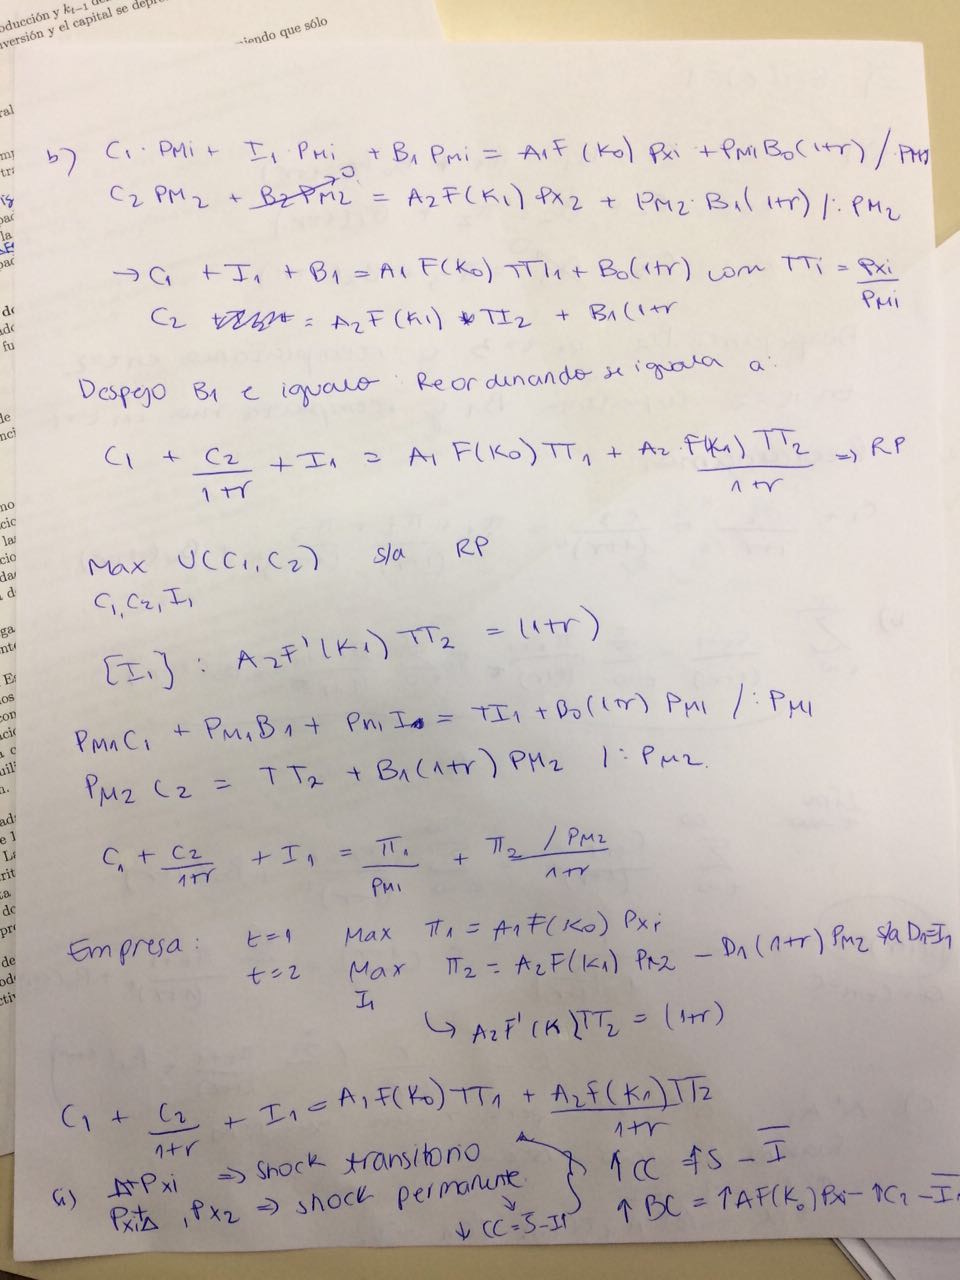 oducción y k_{t-1} de
versión y el capital se depre
niendo que sólo
b) C₁ · PMi + I₁ · PMi + B₁ PMi = A₁F(K₀) Pxi + PM1 B₀(1+r) /
C₂ PM₂ + B₂PM₂ → 0 = A₂F(K₁) Px₂ + PM₂ · B₁(1+r) /: PM₂
→ C₁ + I₁ + B₁ = A₁ F(K₀) TTI₁ + B₀(1+r) com TTi = Pxi / PMi
C₂ = A₂F(K₁) * TI₂ + B₁(1+r
Despejo B₁ e igualo : Reordenando se iguala a :
C₁ + C₂/(1+r) + I₁ = A₁ F(K₀) TT₁ + A₂ F(K₁) TT₂/(1+r) => RP
Max U(C₁, C₂) s/a RP
C₁, C₂, I₁
[I₁] : A₂F'(K₁) TT₂ = (1+r)
PM1C₁ + PM1B₁ + PM1 I₁ = TI₁ + B₀(1+r) PM1 /: PM1
PM2 C₂ = TT₂ + B₁(1+r) PM2 /: PM2.
C₁ + C₂/(1+r) + I₁ = π₁/PM1 + π₂/PM2/(1+r)
Empresa : t=1 Max π₁ = A₁F(K₀) Pxi
t=2 Max π₂ = A₂F(K₁) PM2 - D₁(1+r) PM2 s/a D₁=I₁
I₁
↳ A₂F'(K)TT₂ = (1+r)
C₁ + C₂/(1+r) + I₁ = A₁F(K₀) TT₁ + A₂F(K₁)TT₂/(1+r)
Pxi => shock transitorio ↑ CC = ↑S - I̅
, Px₂ => shock permanente ↑ BC = ↑AF(K₀)Pxi - ↑C₂ - I̅
↓ CC = S̅ - I↑